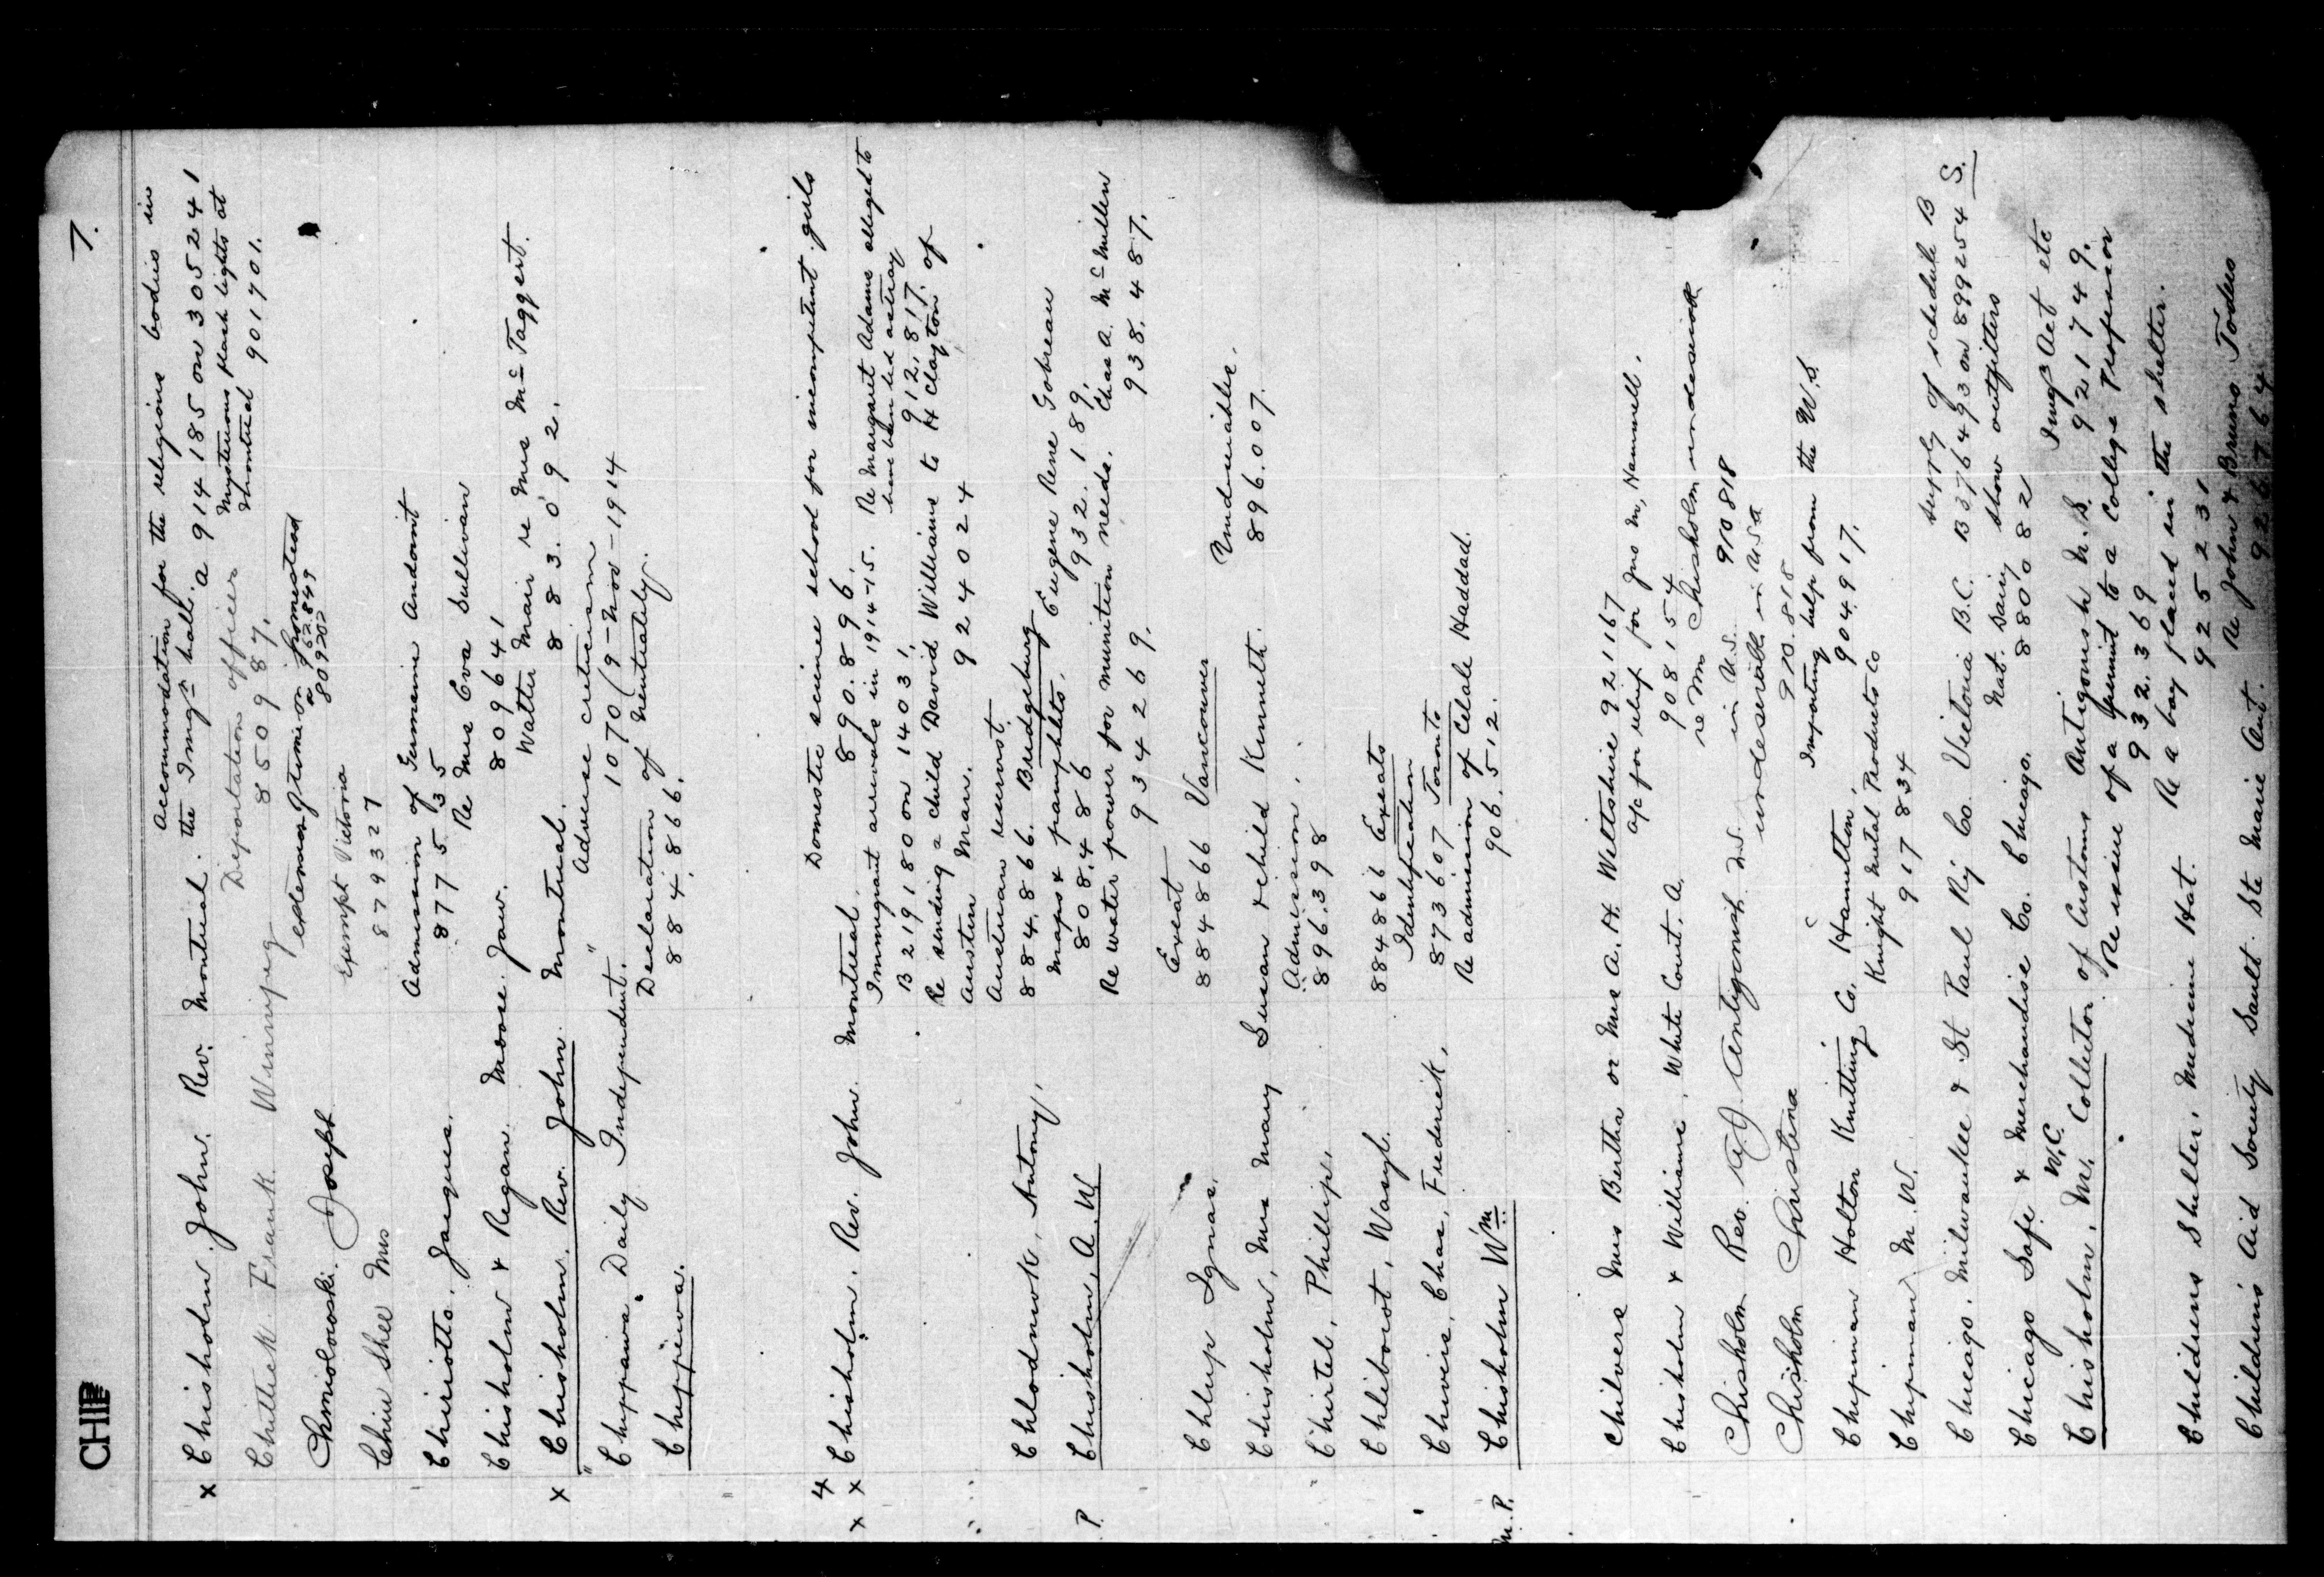 CHIE
7.
Accommodation for the religious bodies in
x Chisholm. John. Rev. Montreal. the Imgn halls. a 914185 on 3052 41
Mysterious flash lights at
Deportation officer Montreal 901701.
Chittick Frank Winnipeg 850987.
homestead
Chmiolowoski. Joseph 809202
Exempt Victoria
Chin Shee Mrs 879327
Admission of Germein Andanit
Chiriotto, Jacques. 877535
Re Mrs Eva Sullivan
Chisholm & Regan. Moose Jaw. 809641
Walter Mair re Mrs McTaggert.
x Chisholm. Rev. John. Montreal. 883.092.
Adverse criticism
"Chippawa" Daily Independent. 1070 (9-Nov-1914
Declaration of neutrality.
Chippewa. 884,866.
4
Domestic science school for incompetent girls
x x Chisholm. Rev. John. Montreal. 890.896.
Immigrant arrivals in 1914-15. Re Margaret Adams alleged to
have been led astray
B 219180 on 14031. 912,817.
Re sending a child David Williams to H Clayton of
Austin Man. 924024
Austrian reservist.
Chlodnuk, Antony, 884,866. Bridgeburg Eugene Rene Gobreau
Maps & pamphlets. 932.189.
P. Chisholm, A. W. 808,486
Re water power for munition needs. Chas A. McMillen
934269. 938.487.
Exeat
Chlup Ignac. 884866 Vancouver Undesirable.
Chisholm, Mrs Mary Susan & child Kenneth. 896.007.
Admission.
Chirtel, Phillip. 896.398
Chliboicot, Wasyl. 884866 Exeats
Identification
Chiveris, Chas, Frederick. 873607 Toronto
Re admission of Celale Haddad.
M.P. Chisholm Wm 906.512.
Chilvers Mrs Bertha or Mrs A. H. Weltshire 921167
a/c for relief for Jno M, Hammell.
Chisholm & Williams, White Court. A. 908154
re Mr Chisholm undesirable
Chisholm Rev. A J Antigonish N.S. in U.S. 910818
undesirable in U.S.A
Chisholm Christena 910.818
Importing help from the U.S
Chipman Holton Knitting Co. Hamilton. 904917.
Knight Metal Products Co
Chipman M. W. 917834
supply of schedule B
Chicago. Milwaukee & St Paul Ry Co. Victoria B.C. B376493 on 899254 S.
Nat. Dairy Show outfitters
Chicago Safe & Merchandise Co. Chicago. 880082
W.C. Img Act etc
Chisholm, M, Collector of Customs Antigonish N.S. 921749.
Re issue of a permit to a College Professor
932.369
Re a boy placed in the shelter.
Childrens Shelter. Medicine Hat. 925231
Re John & Bruno Todeo
Children's Aid Society Sault Ste Marie Ont. 926764